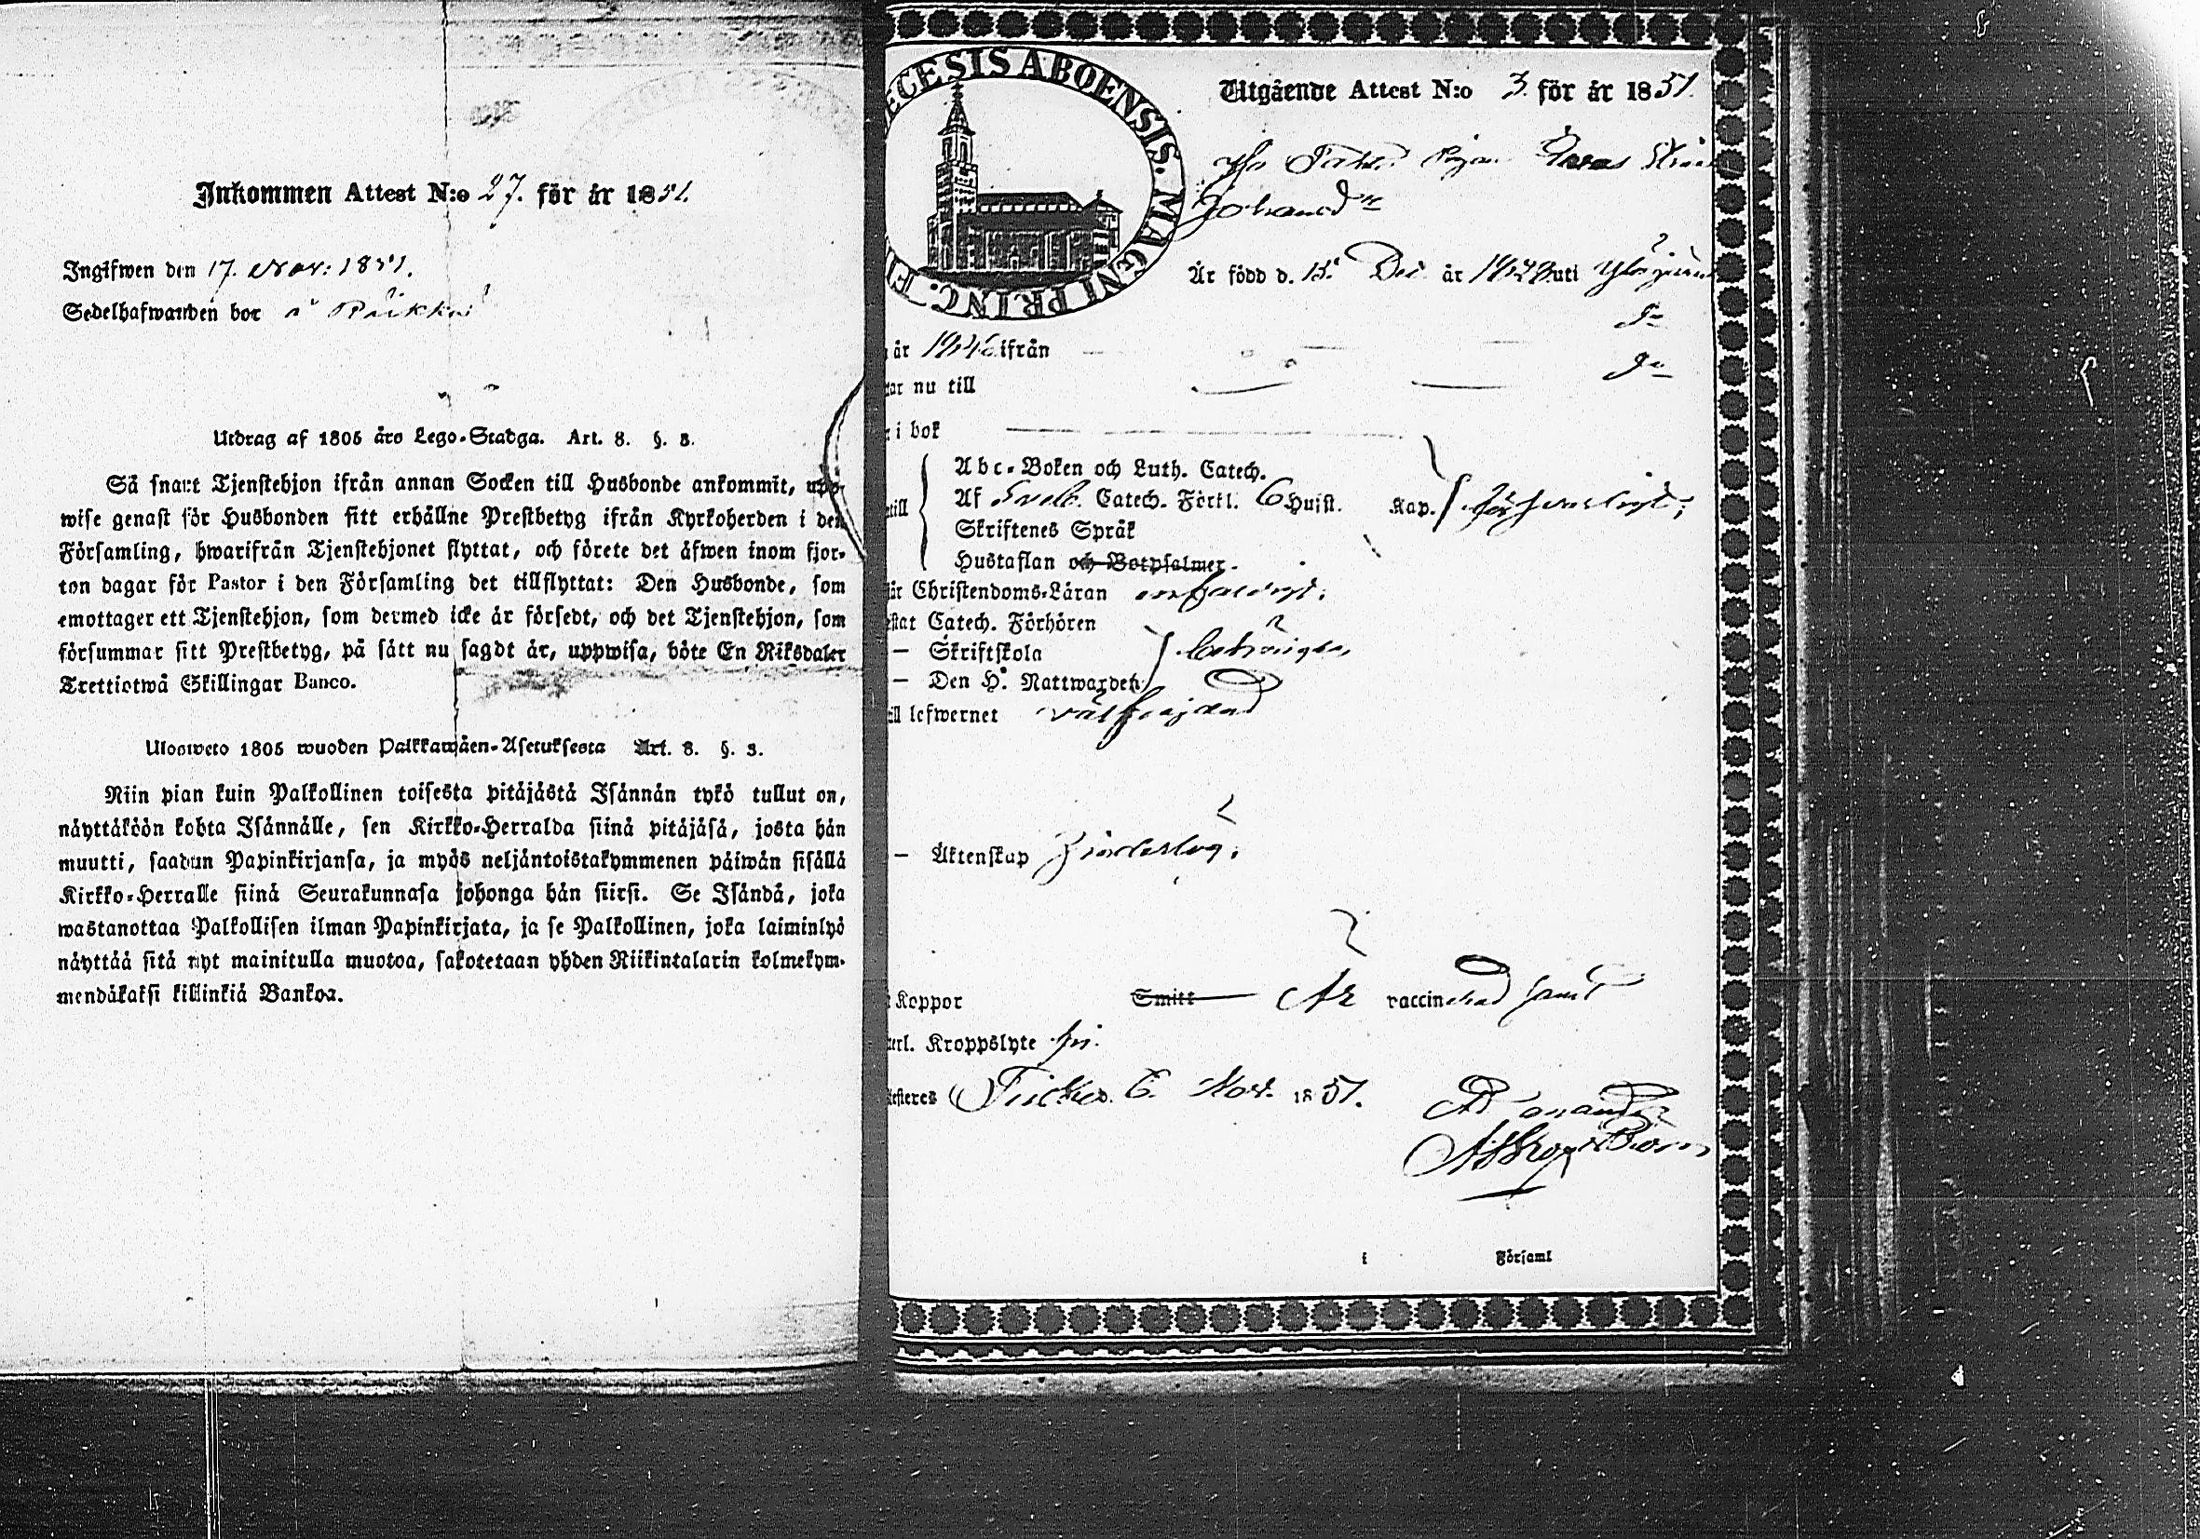 Inkommen Attest N:o 27. för år 1851.
Ingifwen den 17. Nov: 1851.
Sedelhafwanden bor å
Utdrag af 1805 års Lego-Stadga. Art. 8. §. 3.
Så snart Tjenstehjon ifrån annan Socken till Husbonde ankommit, upp-
wise genast för Husbonden sitt erhållne Prestbetyg ifrån Kyrkoherden i den
Församling, hwarifrån Tjenstehjonet flyttat, och förete det äfwen inom fjor-
ton dagar för Pastor i den Församling det tillflyttat: Den Husbonde, som
emottager ett Tjenstehjon, som dermed icke är försedt, och det Tjenstehjon, som
försummar sitt Prestbetyg, på sätt nu sagdt är, uppwisa, böte En Riksdaler
Trettiotwå Skillingar Banco.
Ulosweto 1805 wuoden Palkkawäen-Asetuksesta Art. 8. §. 3.
Niin pian kuin Palkollinen toisesta pitäjästä Isännän tykö tullut on,
näyttäköön kohta Isännälle, sen Kirkko-Herralda siinä pitäjäsä, josta hän
muutti, saadun Papinkirjansa, ja myös neljäntoistakymmenen päiwän sisällä
Kirkko-Herralle siinä Seurakunnasa johonga hän siirsi. Se Isändä, joka
wastanottaa Palkollisen ilman Papinkirjata, ja se Palkollinen, joka laiminlyö
näyttää sitä nyt mainitulla muotoa, sakotetaan yhden Riikintalarin kolmekym-
mendäkaksi killinkiä Bankoa.
ECESIS ABOENSIS. MAGNI PRINC. F
Utgående Attest N:o 3. för år 1851.
Är född d. 15 Dec. år uti
år ifrån
ar nu till
i bok
Abc-Boken och Luth. Catech.
till Af Sveb. Catech. Förkl. 6 Hufst. Kap. försvarligt;
Skriftenes Språk
Hustaflan och Botpsalmer.
är Christendoms-Läran enfaldigt.
stat Catech. Förhören
— Skriftskola
— Den H. Nattwarden
ll lefwernet välfrejdad
— Äktenskap
Koppor Smitt Är vaccinerad samt
erl. Kroppslyte fri.
esteres d. 6. Nov. 1851.
i Förfaml